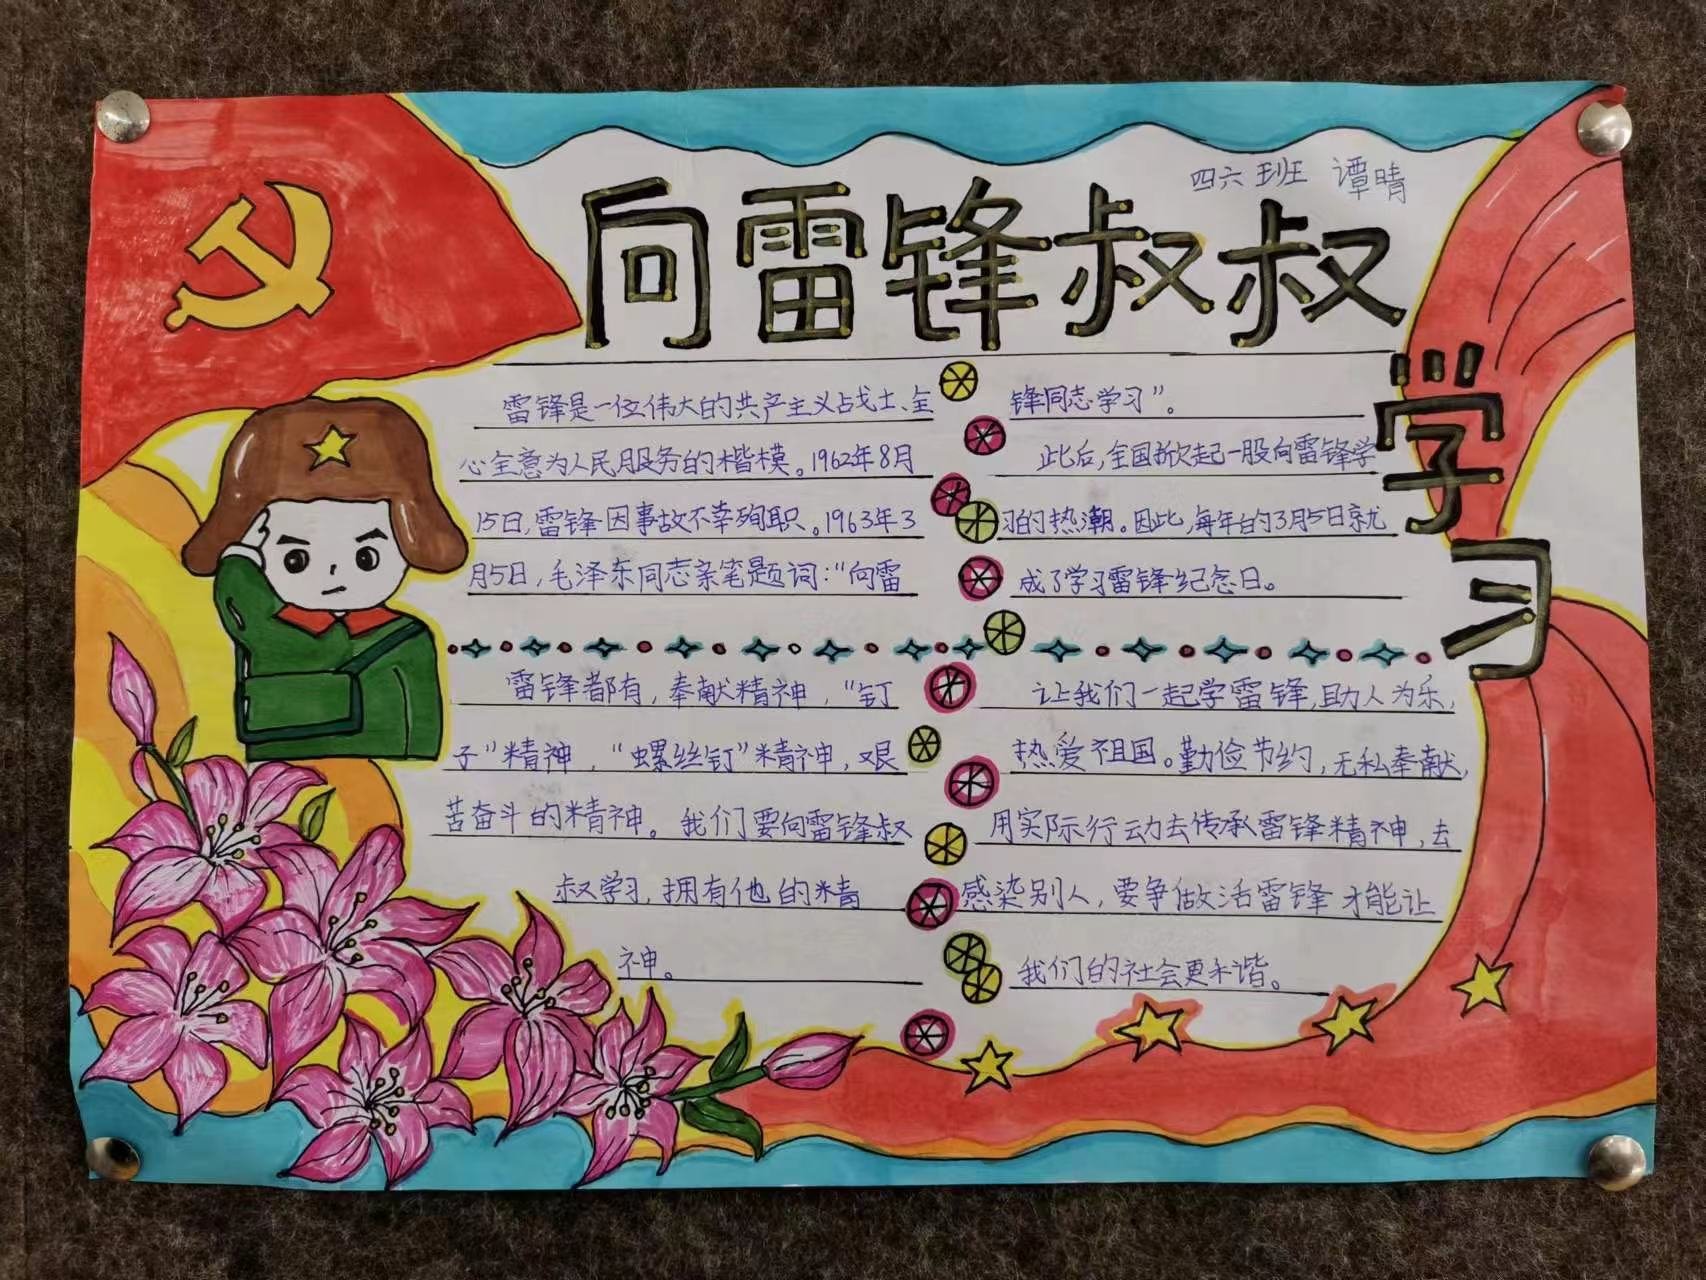 四六班 谭晴
向雷锋叔叔
学习
雷锋是一位伟大的共产主义战士、全
心全意为人民服务的楷模。1962年8月
15日，雷锋因事故不幸殉职。1963年3
月5日，毛泽东同志亲笔题词：“向雷
锋同志学习”。
此后，全国掀起一股向雷锋学
习的热潮。因此，每年的3月5日就
成了学习雷锋纪念日。
雷锋都有，奉献精神，“钉
子”精神，“螺丝钉”精神，艰
苦奋斗的精神。我们要向雷锋叔
叔学习，拥有他的精
神。
让我们一起学雷锋，助人为乐，
热爱祖国。勤俭节约，无私奉献，
用实际行动去传承雷锋精神，去
感染别人，要争做活雷锋才能让
我们的社会更和谐。